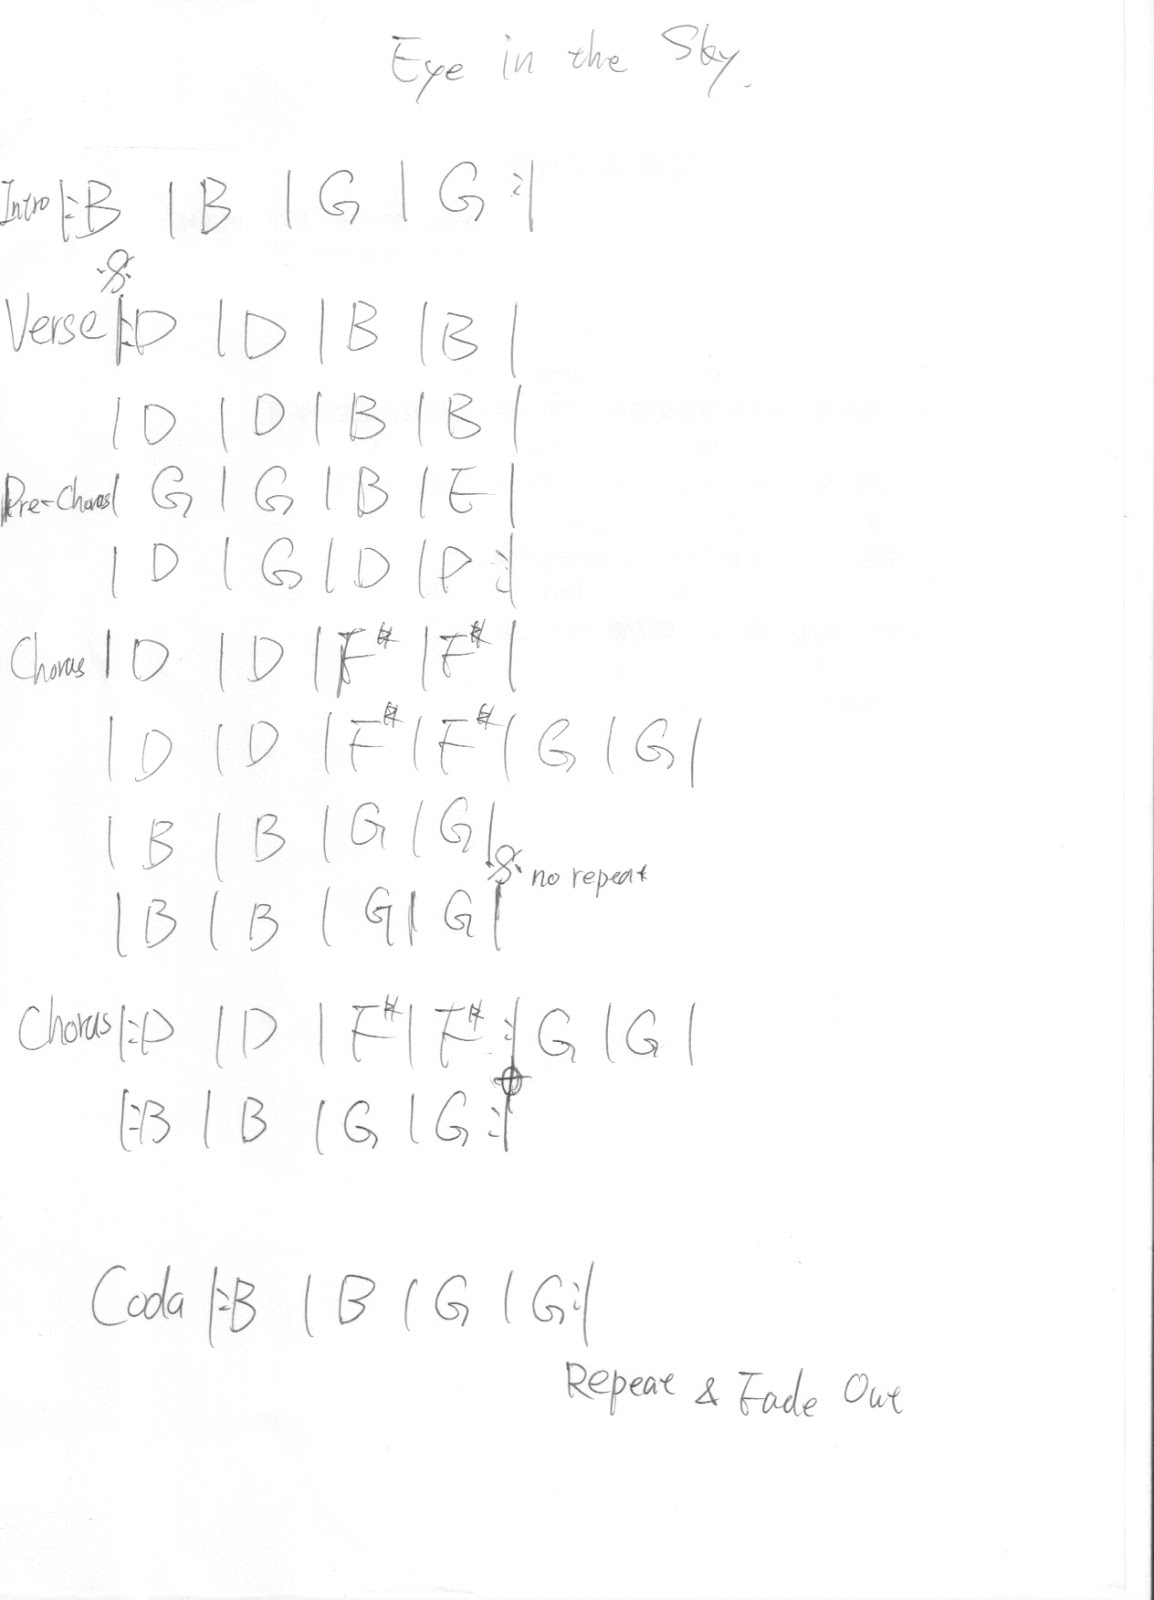 Eye in the Sky.
Intro |: B | B | G | G :|
𝄋
Verse |: D | D | B | B |
| D | D | B | B |
Pre-Chorus | G | G | B | E |
| D | G | D | D :|
Chorus | D | D | F# | F# |
| D | D | F# | F# | G | G |
| B | B | G | G |
𝄋 no repeat
| B | B | G | G |
Chorus |: D | D | F# | F# :| G | G |
𝄌
|: B | B | G | G :|
Coda |: B | B | G | G :|
Repeat & Fade Out